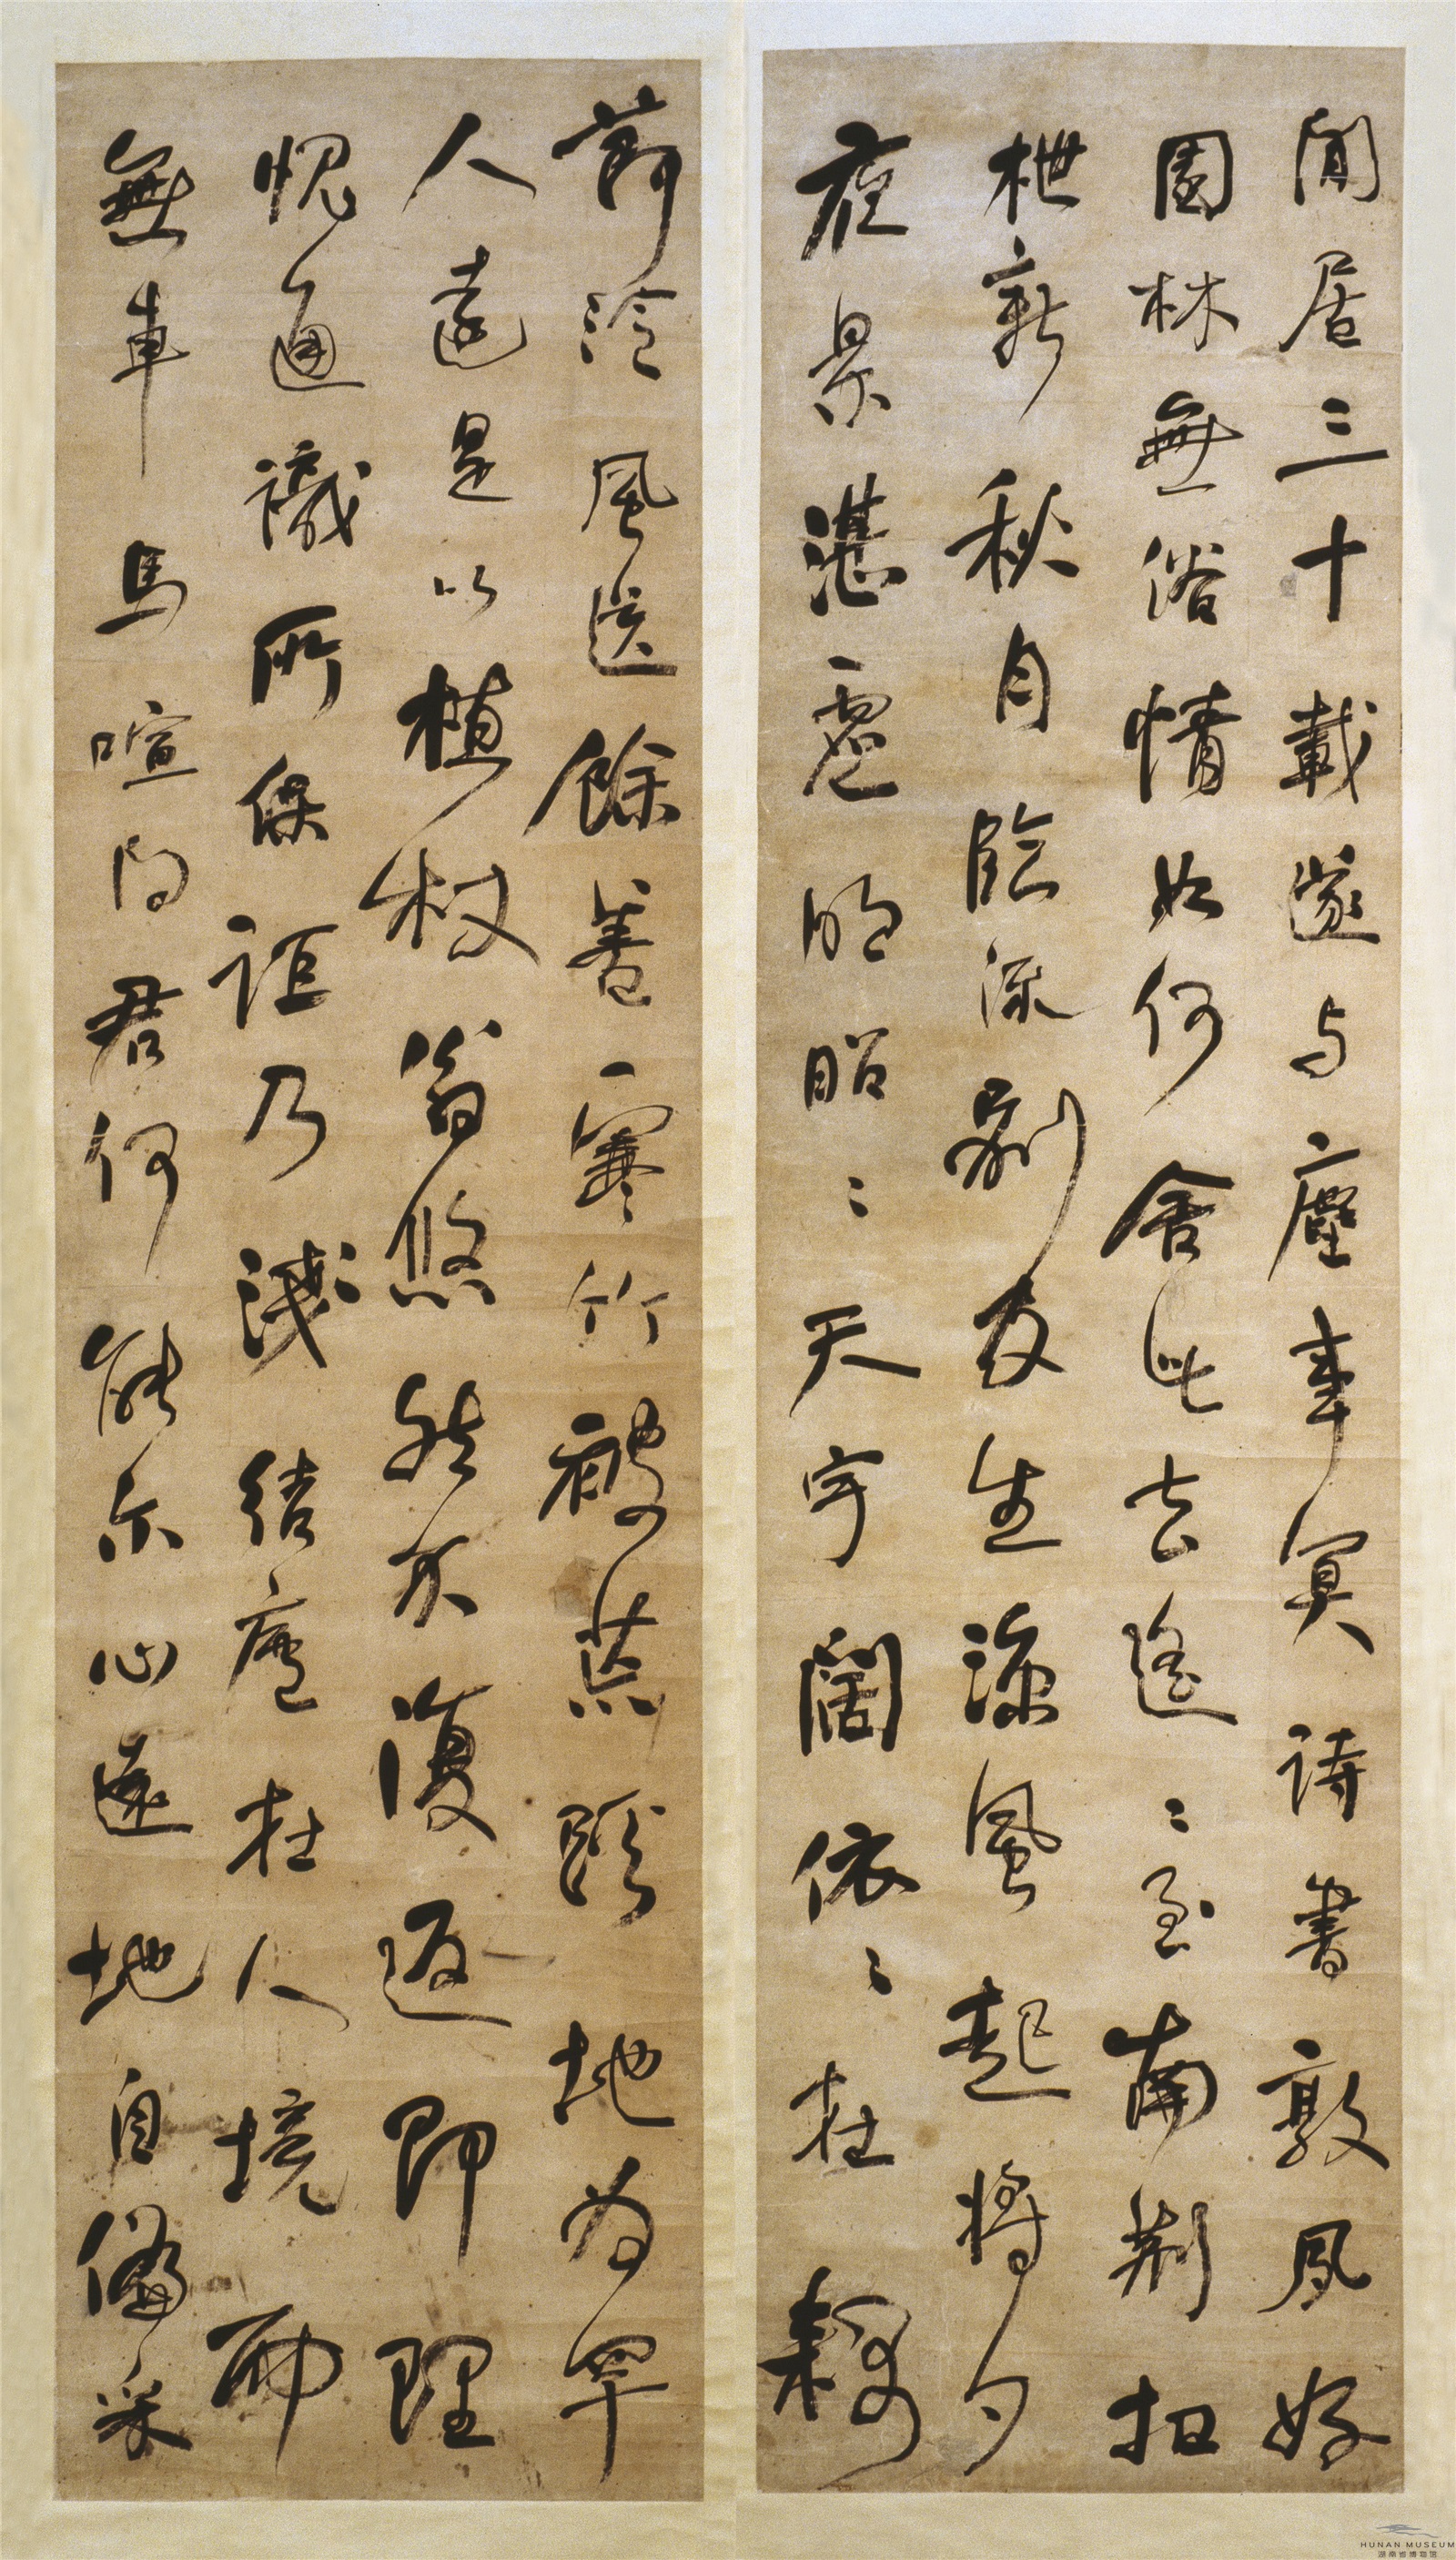 閒居三十載遂与塵事冥詩書敦夙好
園林無俗情如何舍此去遙〻至南荆扣
枻新秋月臨流別友生涼風起將夕
夜景湛虛明昭〻天宇闊依〻在耦
節泠風送餘善寒竹被荒蹊地为罕
人遠是以植杖翁悠然不復返即理
愧通識所保詎乃淺結廬在人境而
無車馬喧问君何能尓心遠地自偏采
HUNAN MUSEUM
湖南省博物馆